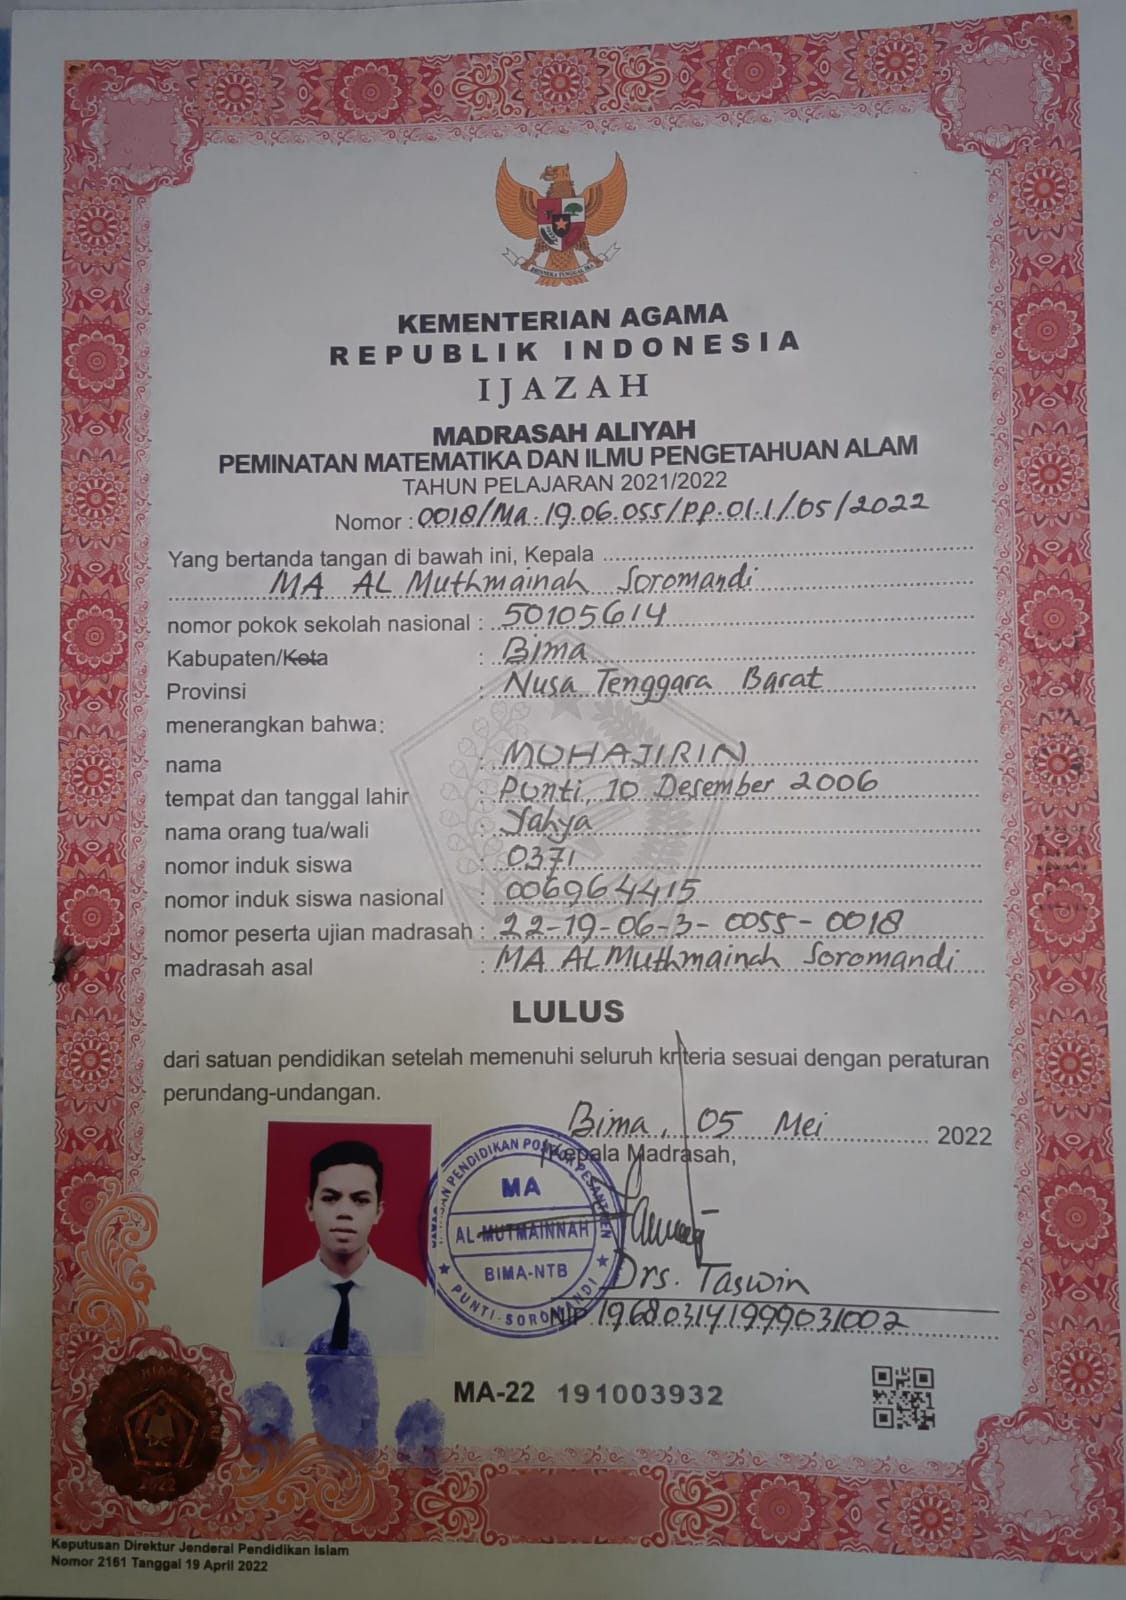 KEMENTERIAN AGAMA
REPUBLIK INDONESIA
IJAZAH
MADRASAH ALIYAH
PEMINATAN MATEMATIKA DAN ILMU PENGETAHUAN ALAM
TAHUN PELAJARAN 2021/2022
Nomor : 0018/Ma.19.06.055/PP.01.1/05/2022
Yang bertanda tangan di bawah ini, Kepala
MA AL Muthmainah Soromandi
nomor pokok sekolah nasional : 50105614
Kabupaten/Kota : Bima
Provinsi : Nusa Tenggara Barat
menerangkan bahwa:
nama : MUHAJIRIN
tempat dan tanggal lahir : Punti, 10 Desember 2006
nama orang tua/wali : Yahya
nomor induk siswa : 0371
nomor induk siswa nasional : 006964415
nomor peserta ujian madrasah : 22-19-06-3-0055-0018
madrasah asal : MA AL Muthmainah Soromandi
LULUS
dari satuan pendidikan setelah memenuhi seluruh kriteria sesuai dengan peraturan
perundang-undangan.
Bima, 05 Mei 2022
Kepala Madrasah,
PENDIDIKAN PONDOK PESANTREN
MA
AL-MUTMAINNAH
BIMA-NTB
PUNTI-SOROMANDI
Drs. Taswin
NIP. 196803141999031002
MA-22 191003932
2022
Keputusan Direktur Jenderal Pendidikan Islam
Nomor 2161 Tanggal 19 April 2022